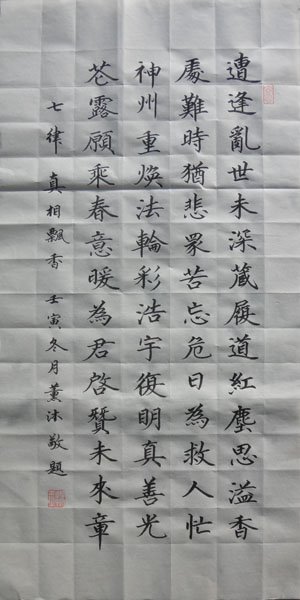 遭逢亂世未深藏履道紅塵思溢香
處難時猶悲眾苦忘危日為救人忙
神州重煥法輪彩浩宇復明真善光
花露願乘春意暖為君啓贊未來章
七律 真相飄香 壬寅冬月薰沐敬題